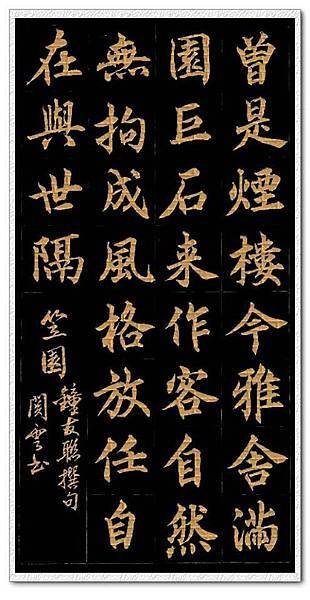 曾是煙樓今雅舍滿
園巨石来作客自然
無拘成風格放任自
在與世隔
竺園
鐘友聯撰句
閔雲书